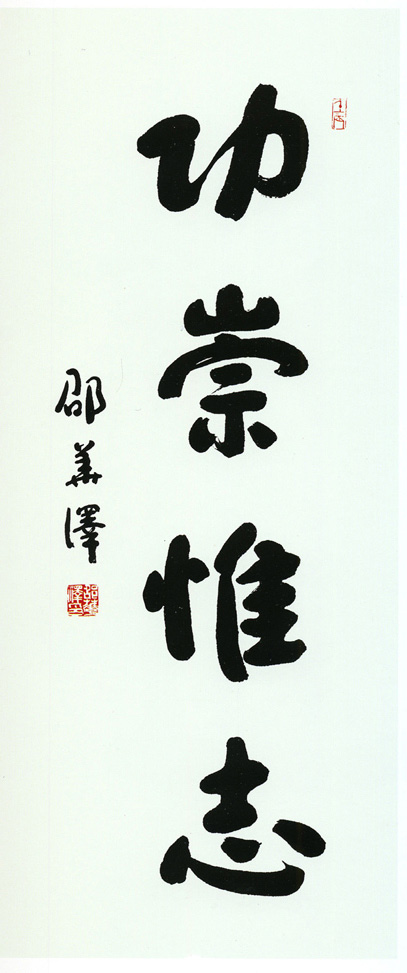 功崇惟志
邵華澤